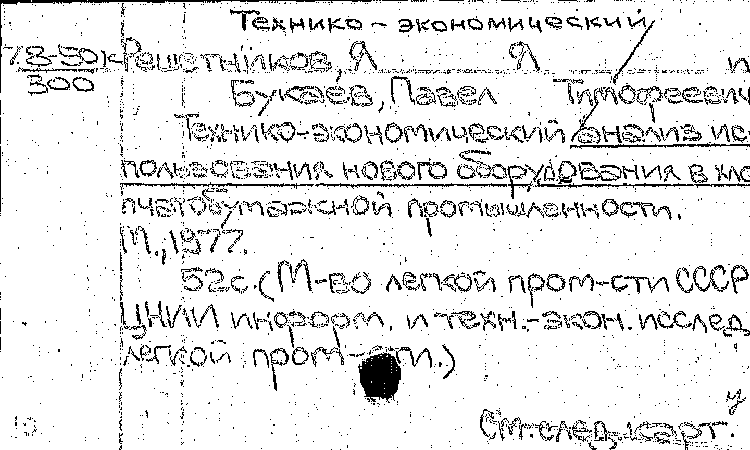 Технико-экономический
78-50к Решетников, Я Я и
300
Букаев, Павел Тимофеевич
Технико-экономический анализ ис-
пользования нового оборудования в хло-
пчатобумажной промышленности.
М., 1977.
52 с. (М-во легкой пром-сти СССР
ЦНИИ информ. и техн.-экон. исслед.
легкой пром-сти.)
у
См. след. карт.